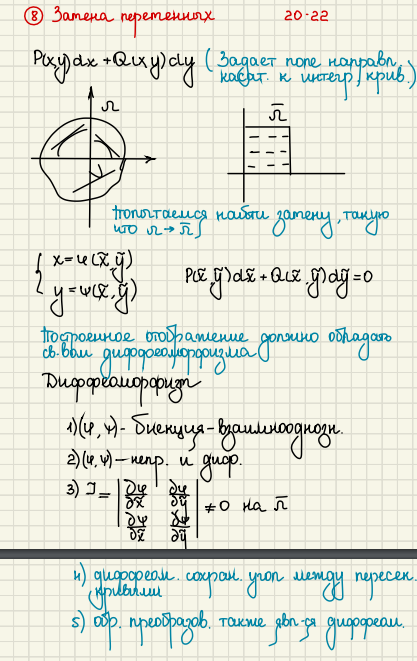 ⑧ Замена переменных 20-22
P(x,y)dx + Q(x,y)dy (Задает поле направл.
касат. к интегр. крив.)
Ω
Ω̅
Попытаемся найти замену, такую
что Ω → Ω̅,
{ x = φ(x̅,y̅)
y = ψ(x̅,y̅)
P(x̅,y̅)dx̅ + Q(x̅,y̅)dy̅ = 0
Построенное отображение должно обладать
св-вом диффеоморфизма
Диффеоморфизм
1) (φ, ψ) - биекция - взаимноодн
2) (φ, ψ) — непр. и диф.
3) J = | ∂φ/∂x̅ ∂φ/∂y̅ |
| ∂ψ/∂x̅ ∂ψ/∂y̅ | ≠ 0 на Ω̅
4) диффеом. сохран. угол между пересек.
кривыми
5) обр. преобразов. также явл-ся диффеом.